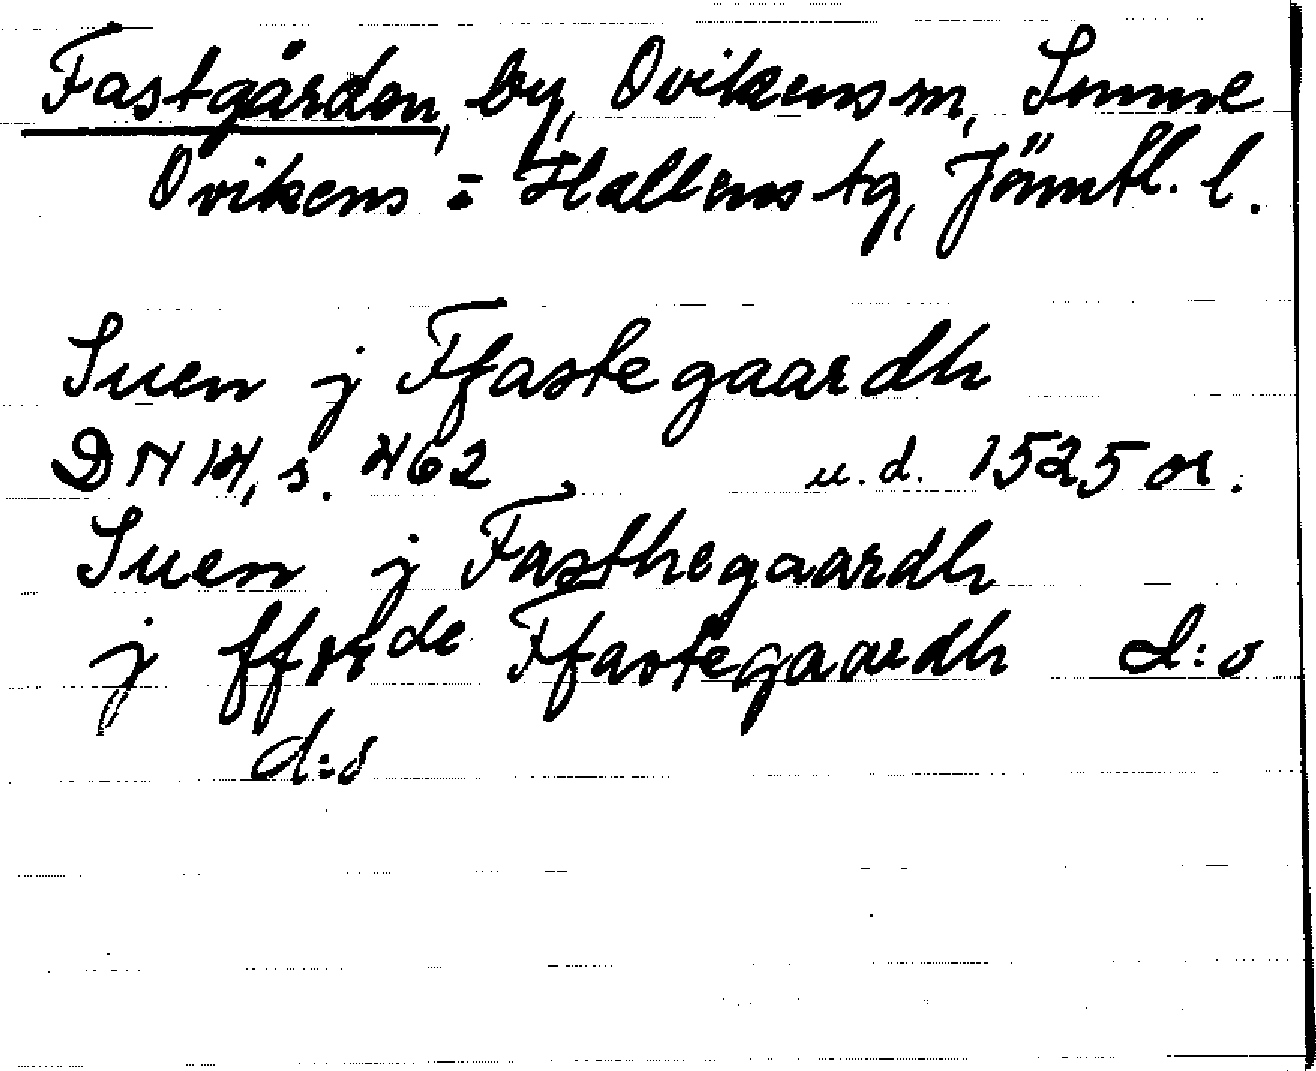 Fastgården, by, Ovikens sn, Sunne
Ovikens = Hallens tg, Jämtl. l.
Suen j Ffastegaardh
DN 14, s. 462 u.d. 1525 or.
Suen j Fasthegaardh
j Ffastegaardh d:o
d:o